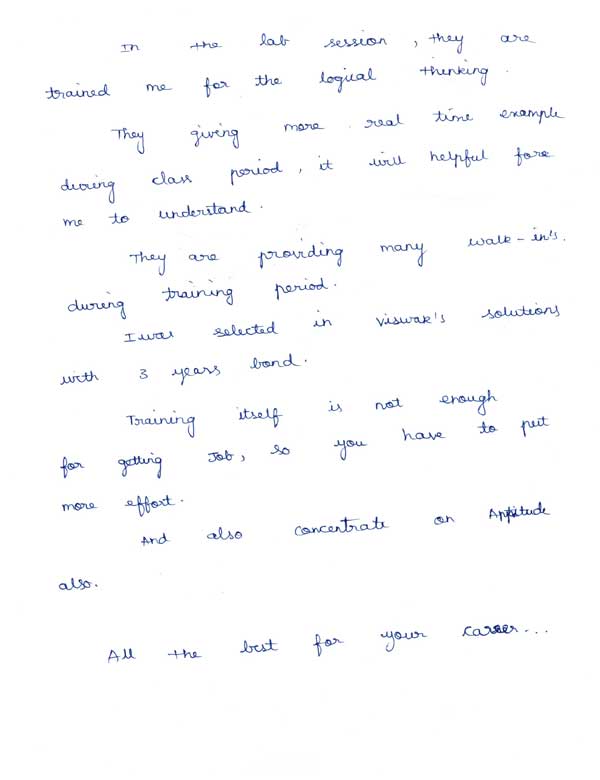 In the lab session, they are
trained me for the logical thinking.
They giving more real time example
during class period, it will helpful fore
me to understand.
They are providing many walk-in's.
during training period.
I was selected in viswak's solutions
with 3 years bond.
Training itself is not enough
for getting Job, so you have to put
more effort.
And also concentrate on Apptitude
also.
All the best for your career...